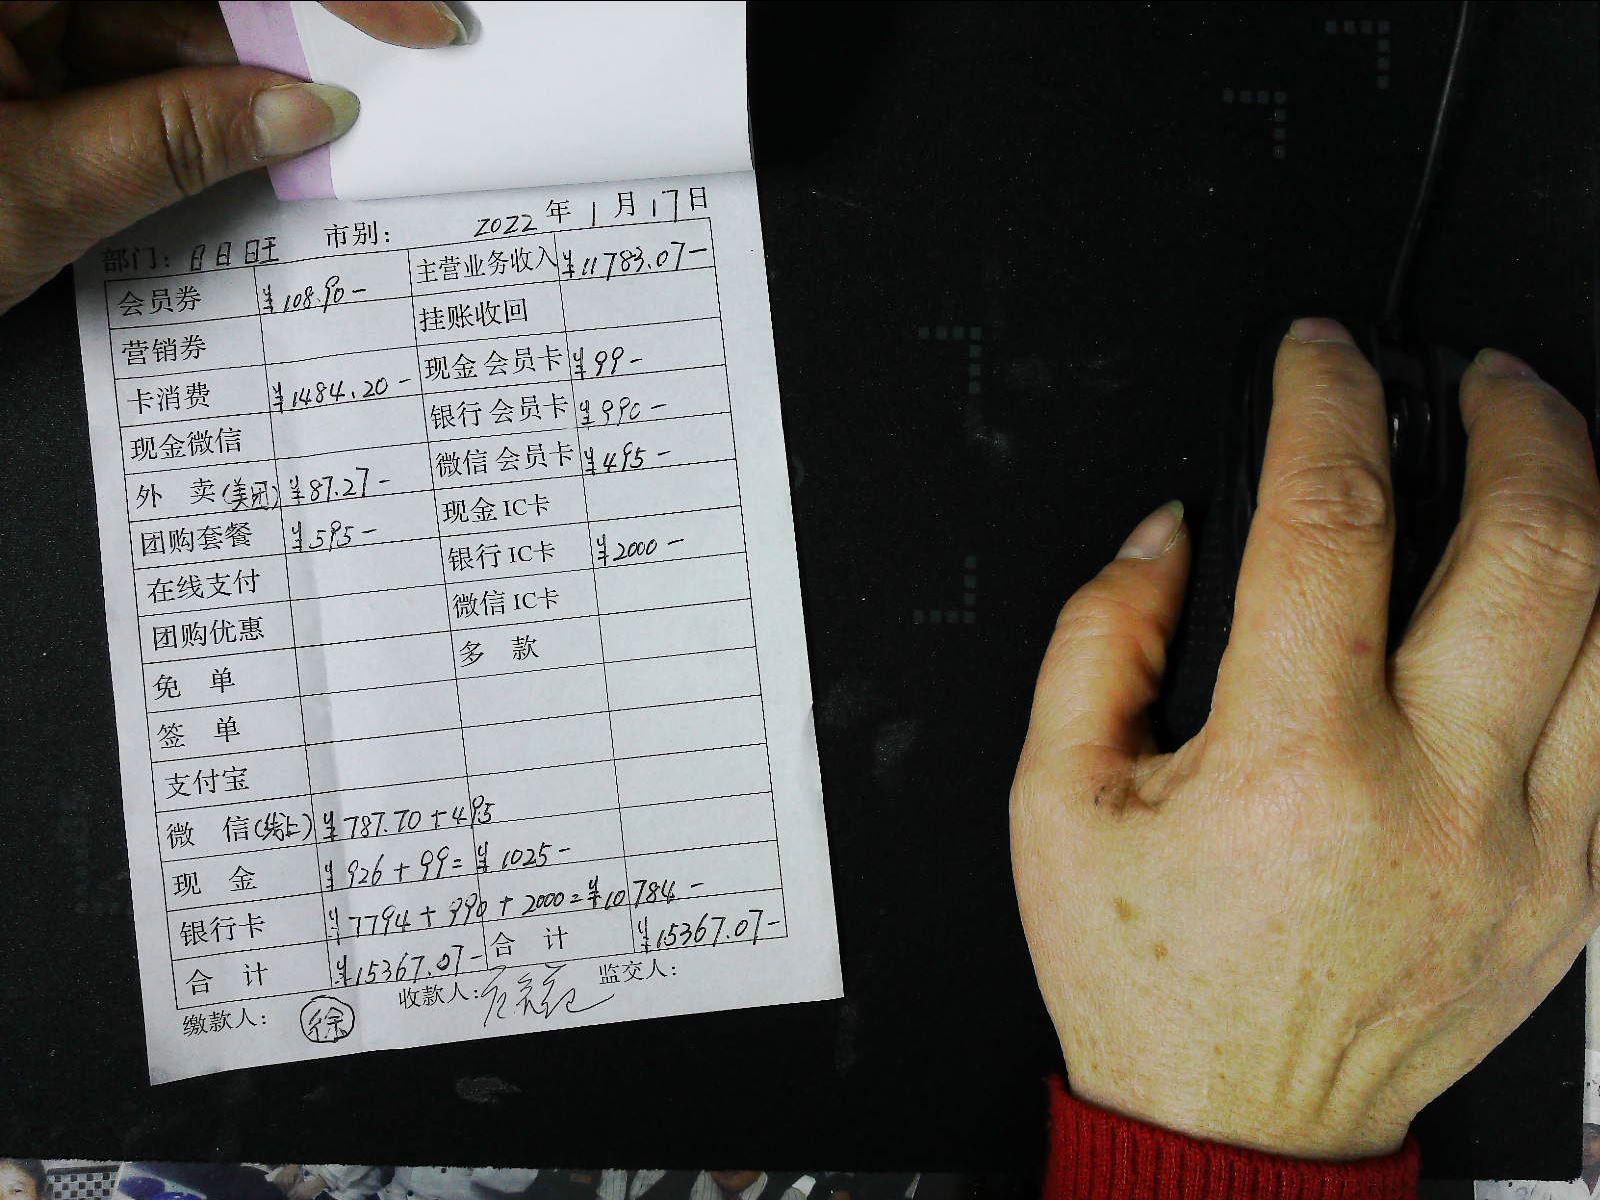 部门：日日旺 市别： 2022年1月17日
会员券 ¥108.90- 主营业务收入 ¥11783.07-
营销券 挂账收回
卡消费 ¥1484.20- 现金会员卡 ¥99-
现金微信 银行会员卡 ¥990-
外 卖(美团) ¥87.27- 微信会员卡 ¥495-
团购套餐 ¥595- 现金IC卡
在线支付 银行IC卡 ¥2000-
团购优惠 微信IC卡
免 单 多 款
签 单
支付宝
微 信(线上) ¥787.70+495
现 金 ¥926+99=¥1025-
银行卡 ¥7794+990+2000=¥10784-
合 计 ¥15367.07- 合 计 ¥15367.07-
缴款人：徐 收款人： 监交人：